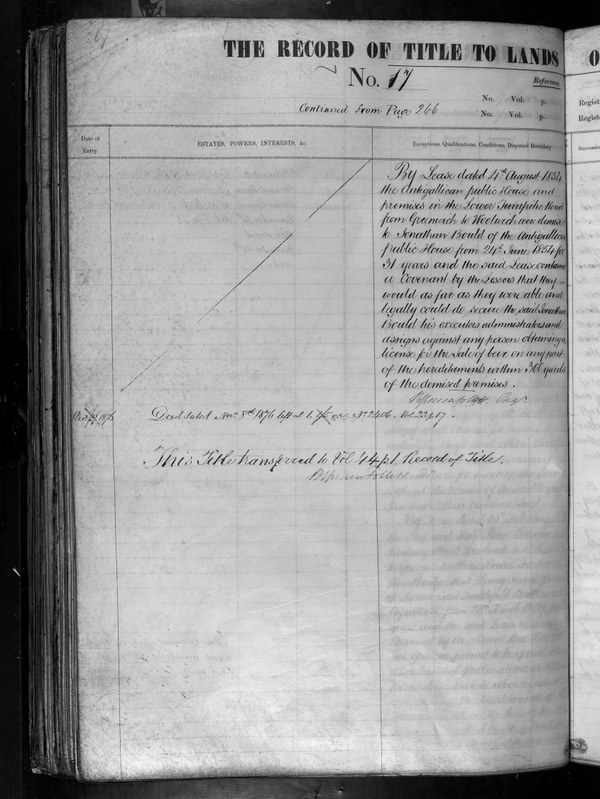 267
THE RECORD OF TITLE TO LANDS
No. 17
Reference.
No. Vol. p.
Continued from Page 266
No. Vol. p.
O
Regist
Registe
Date of
Entry
ESTATES, POWERS, INTERESTS, &c.
Exceptions, Qualifications, Conditions, Disputed Boundary
By Lease dated 4th August 1854
the Antigallican public House and
premises in the Lower Turnpike Road
from Greenwich to Woolwich were demised
to Jonathan Bould of the Antigallican
public House from 24th June 1854 for
31 years and the said Lease contained
a Covenant by the Lessors that they
would as far as they were able and
legally could do secure the said Jonathan
Bould his executors administrators and
assigns against any person obtaining a
license for the sale of beer on any part
of the hereditaments within 300 yards
of the demised premises.
Deed dated Nov. 8th 1876 left at No 2406. Vol. 23 p 17.
This Title transferred to Vol. 44 p 1, Record of Title.